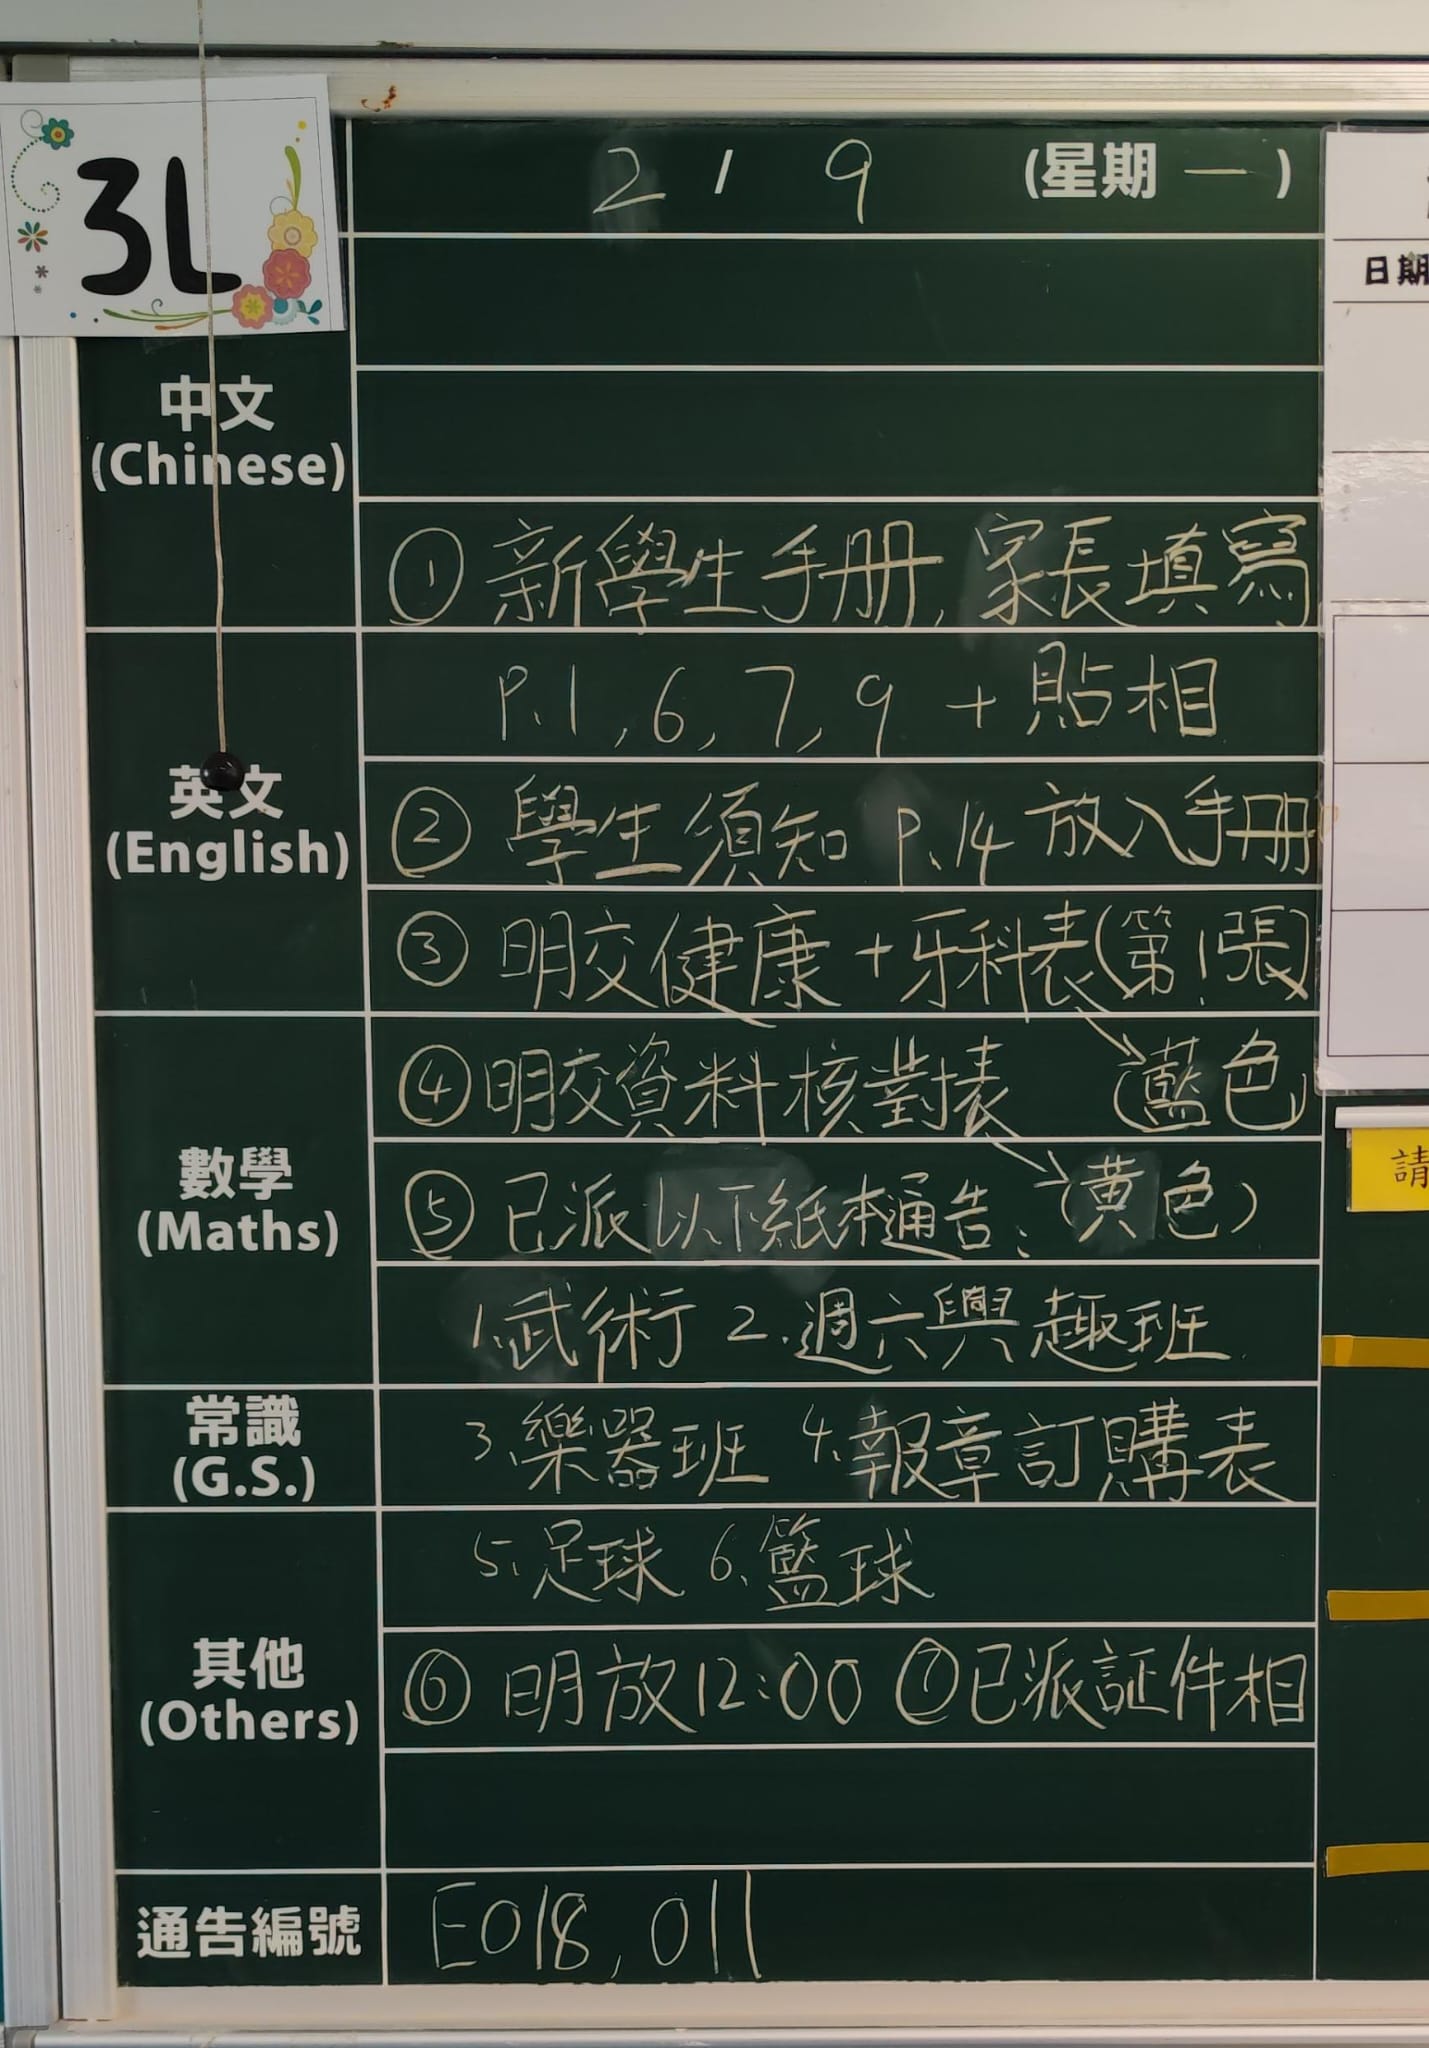 3L
2 / 9 (星期一)
日期
中文
(Chinese)
① 新學生手册, 家長填寫
P.1, 6, 7, 9 + 貼相
英文
(English)
② 學生須知 P.14 放入手册
③ 明交健康+牙科表(第1張)
④ 明交資料核對表 (藍色)
數學
(Maths)
⑤ 已派以下紙本通告: (黃色)
1. 武術 2. 週六興趣班
常識
(G.S.)
3. 樂器班 4. 報章訂購表
5. 足球 6. 籃球
其他
(Others)
⑥ 明放12:00 ⑦ 已派証件相
通告編號
E018, 011
請